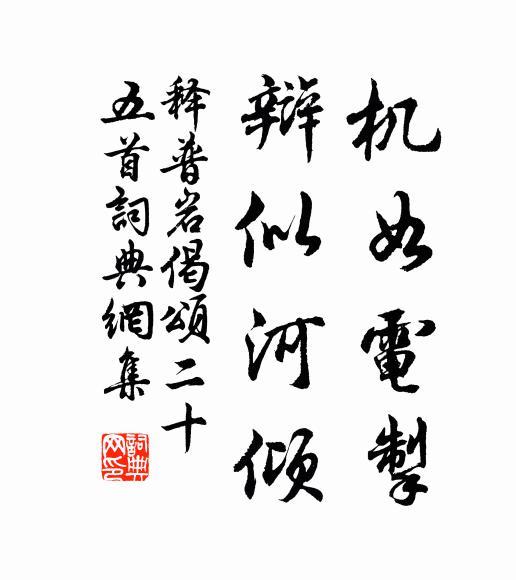 机如電掣
辯似河傾
释普岩偈頌二十
五首詞典網集
詞典網印